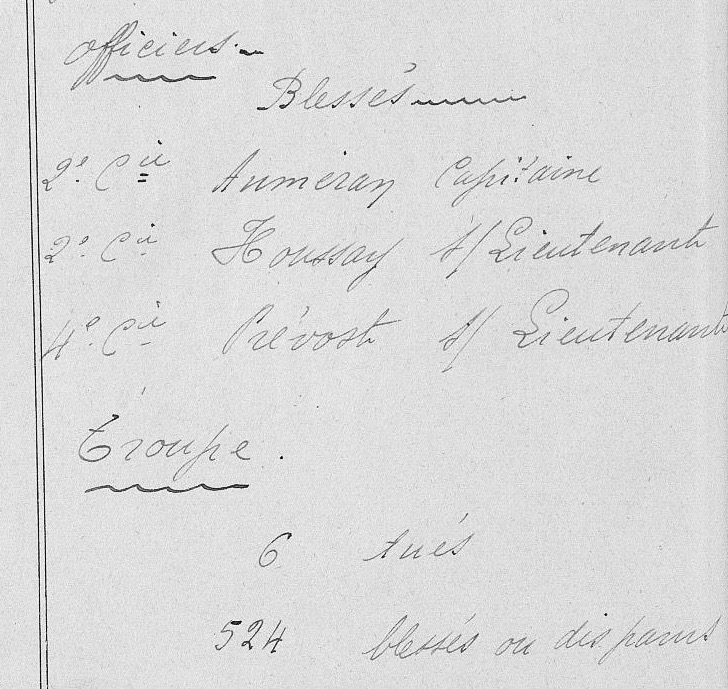 officiers.
Blessés
2e. Cie Auméran Capitaine
2e. Cie Houssay S/Lieutenant
4e. Cie Prévost S/ Lieutenant
Troupe.
6 tués
524 blessés ou disparus